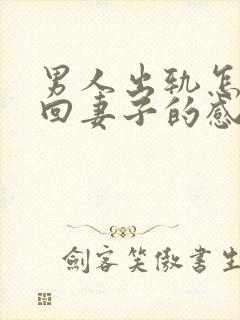 男人出轨怎
回妻子的感
剑客笑傲書生